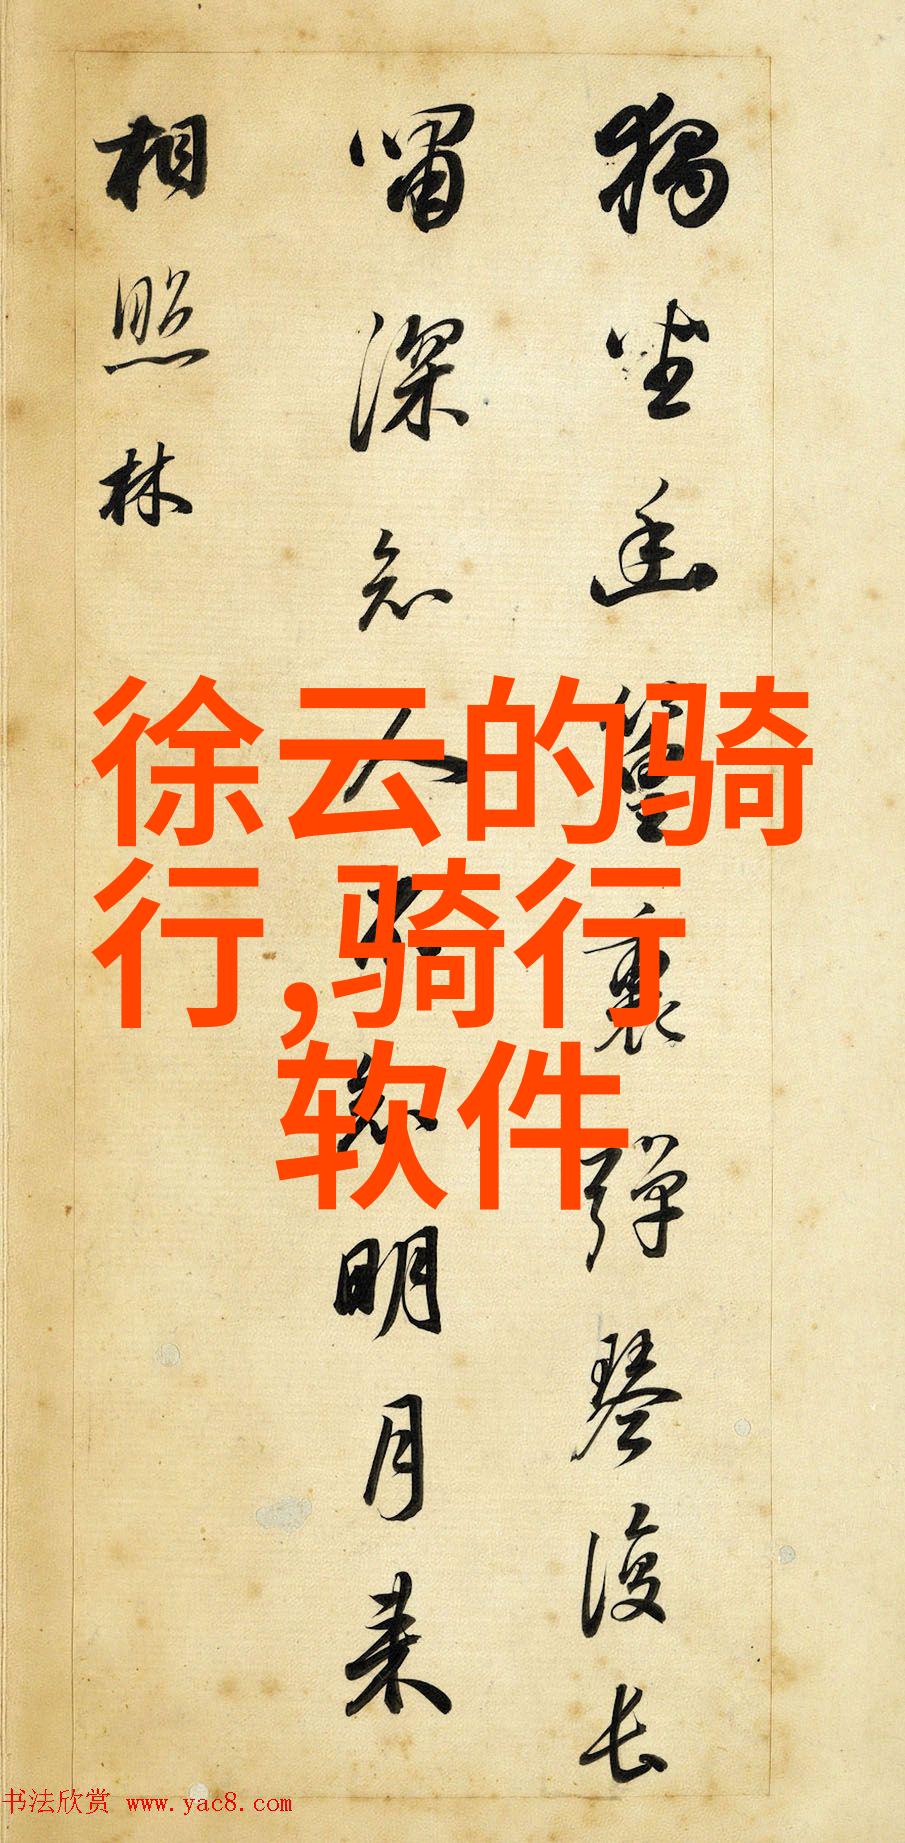 獨坐幽篁裏彈琴復長
嘯深知人不知明月来
相照林
徐云的骑
行,骑行
软件
书法欣赏 www.yac8.com